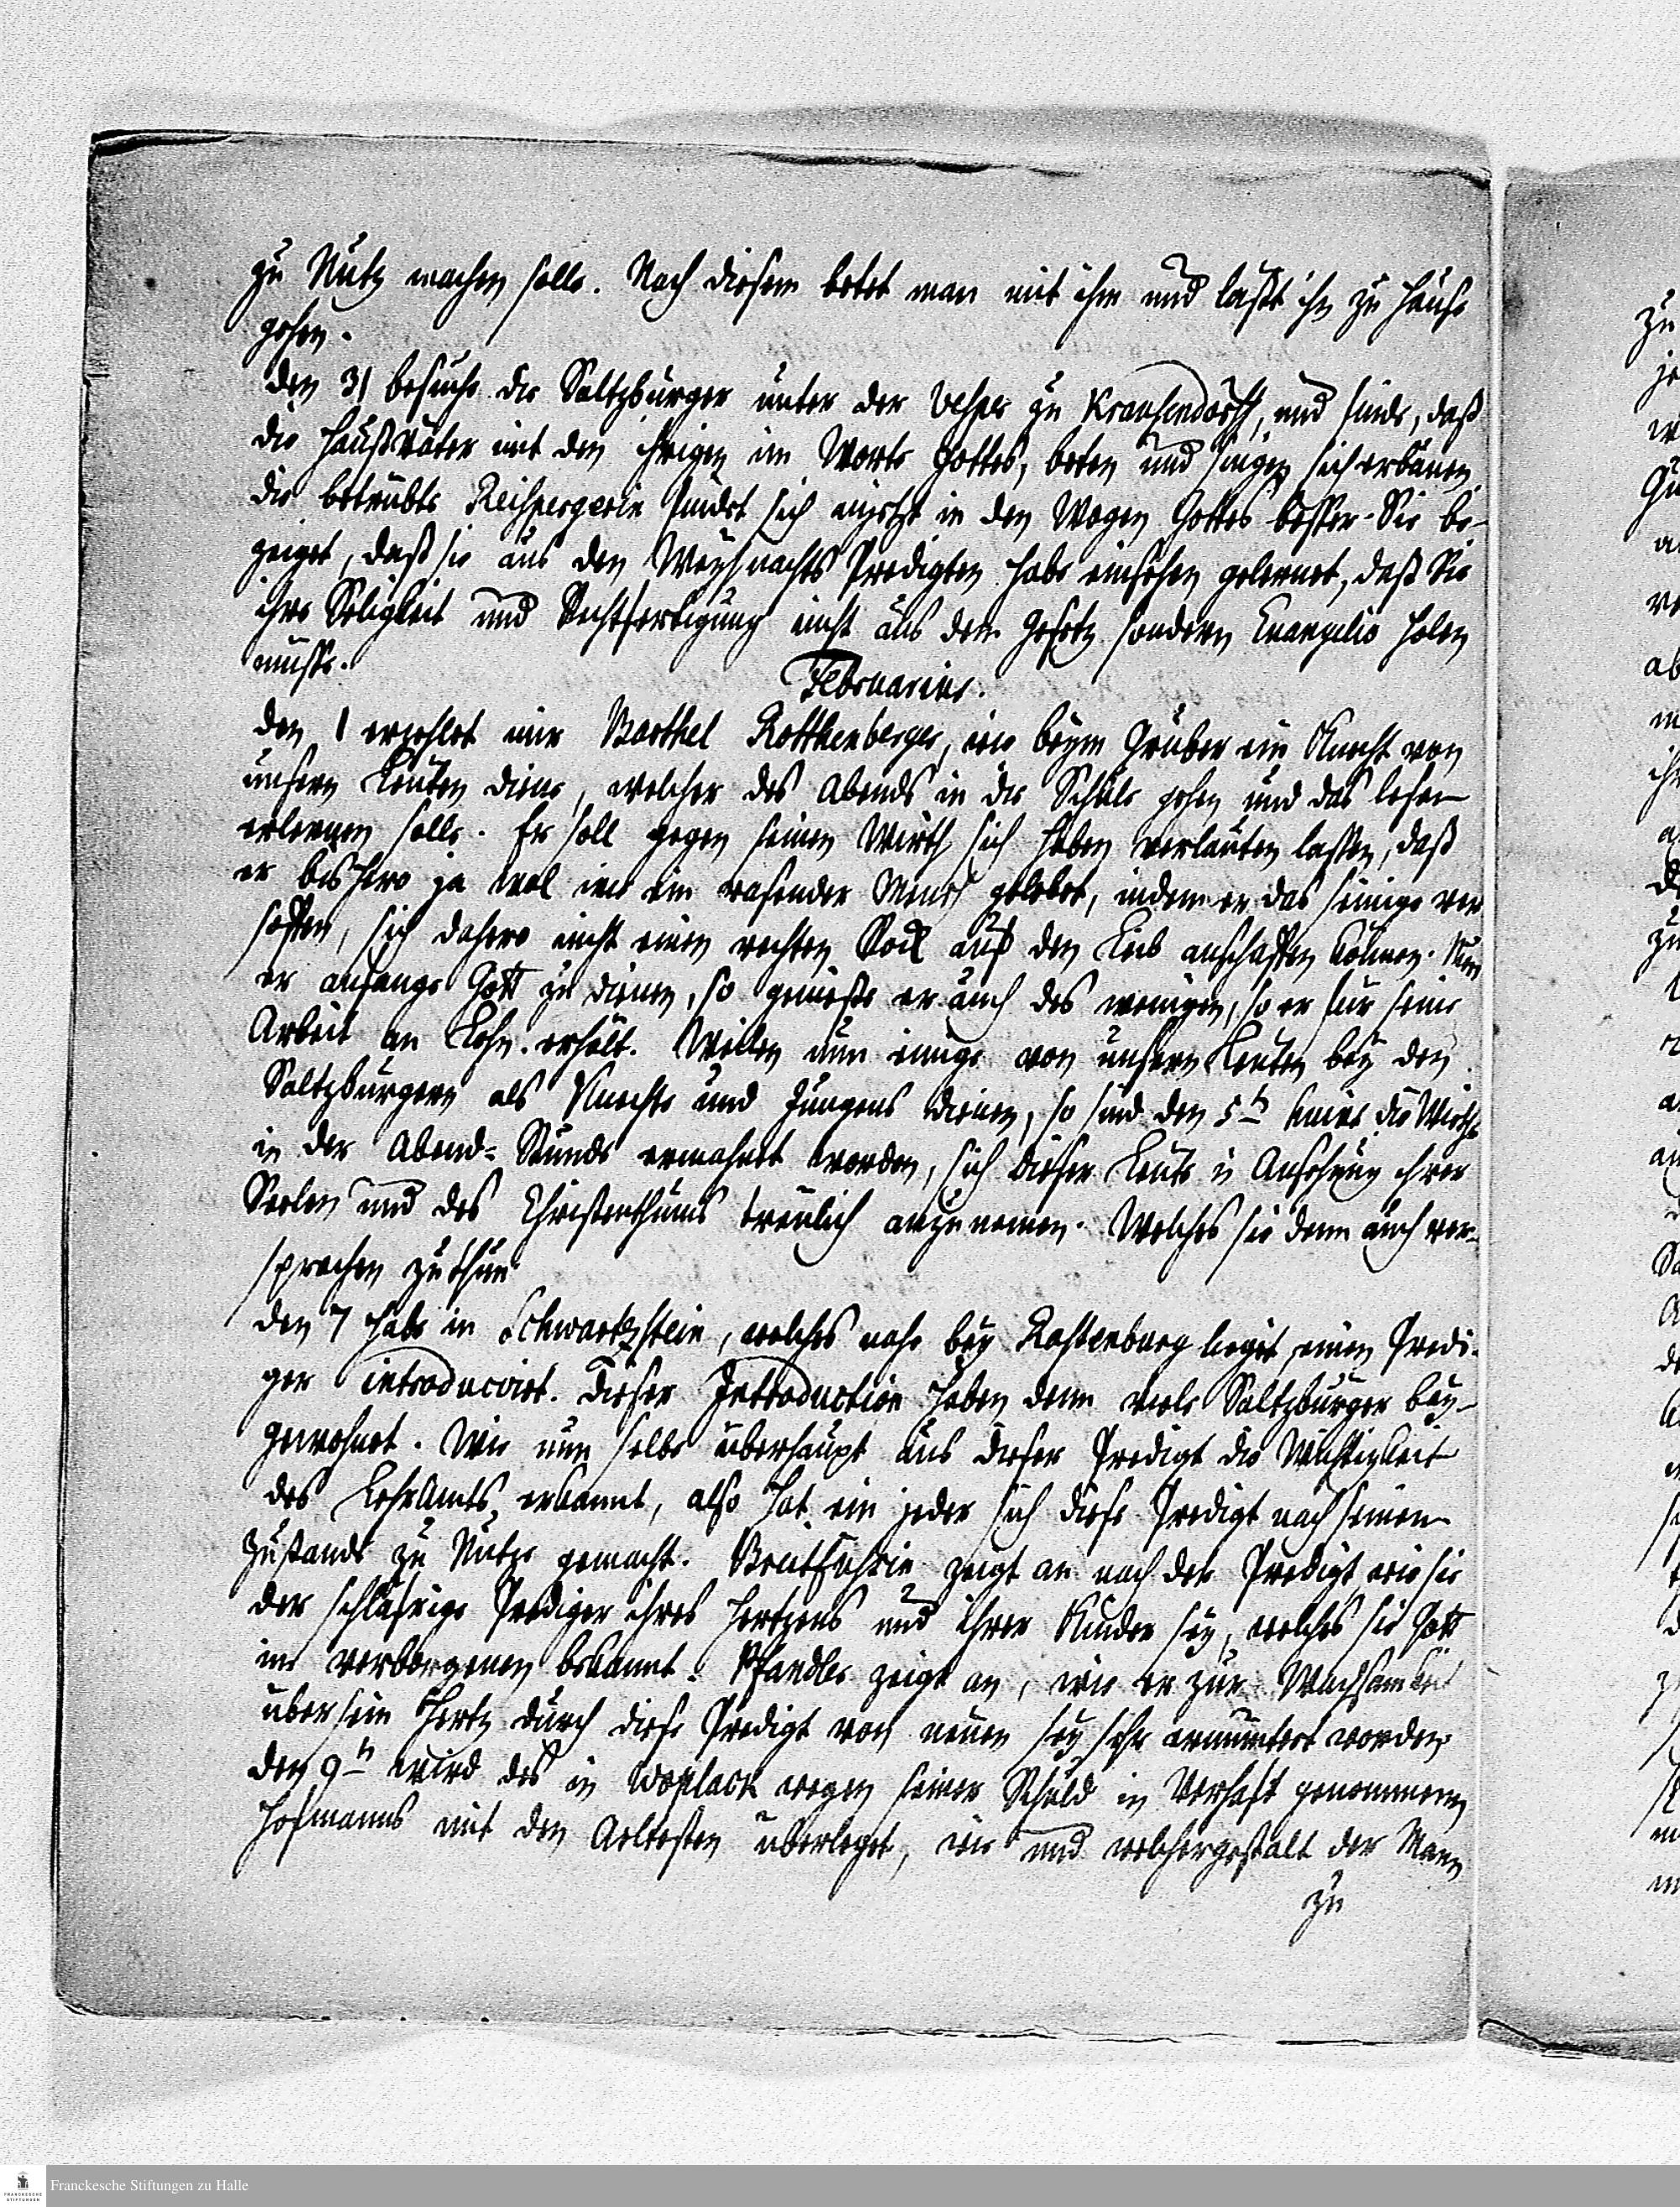 zu Nutz machen solle. Nach diesem betet man mit ihm und läßt ihn zu Hause
gehen.
den 31 besuche die Saltzburger unter der Vesper zu Krausendorff, und finde, daß
die Haußväter mit den ihrigen im Worte Gottes, beten und singen sich erbauen.
die betrübte Reischpergerin findet sich anjetzt in den Wegen Gottes besser. Sie be-
zeiget, daß sie aus den Weyhnachts Predigten habe einsehen gelernet, daß Sie
ihre Seligkeit und Rechtfertigung nicht aus dem Gesetz sondern Evangelio holen
müsse.
Februarius.
den 1 erzehlet mir Barthel Rotthenberger, wie beym Gruber ein Knecht von
unsern Leuten diene, welcher des Abends in die Schule gehen und das lesen
erlernen solle. Er soll gegen seinen Wirth sich haben verlauten lassen, daß
er bishero ja wol wie ein rasender Mensch gelebet, indem er das seinige ver
soffen, sich dahero nicht einen rechten Rock auf den Leib anschaffen können. Nun
er anfange Gott zu dienen, so geniesse er auch des wenigen, so er für seine
Arbeit an Lohn erhält. Weilen nun einige von unsern Leuten bey den
Saltzburgern als Knechte und Jungens dienen, so sind den 5ten huius die Wirthe
in der Abend-Stunde ermahnet worden, sich dieser Leute in Ansehung ihrer
Seelen und des Christenthums treulich anzunemen. Welches sie denn auch ver-
sprochen zu thun.
den 7 habe in Schwartzstein, welches nahe bey Rastenburg lieget, einen Predi-
ger introduciret. Dieser Introduction haben denn viele Saltzburger bey-
gewohnet. Wie nun selbe überhaupt aus dieser Predigt die Wichtigkeit
des LehrAmts erkannt, also hat ein jeder sich diese Predigt nach seinem
Zustande zu Nutze gemacht. zeigt an nach der Predigt, wie sie
der schläfrige Prediger ihres Hertzens und ihrer Kinder sey, welches sie Gott
im verborgenen bekannt. Pfandler zeigt an, wie er zur Wachsamkeit
über sein Hertz durch diese Predigt von neuen sey sehr ermuntert worden.
den 9ten wird des in Woplack wegen seiner Schuld in Verhaft genommenen
Hofmanns mit den Aeltesten überleget, wie und welchergestalt der Mann
zu